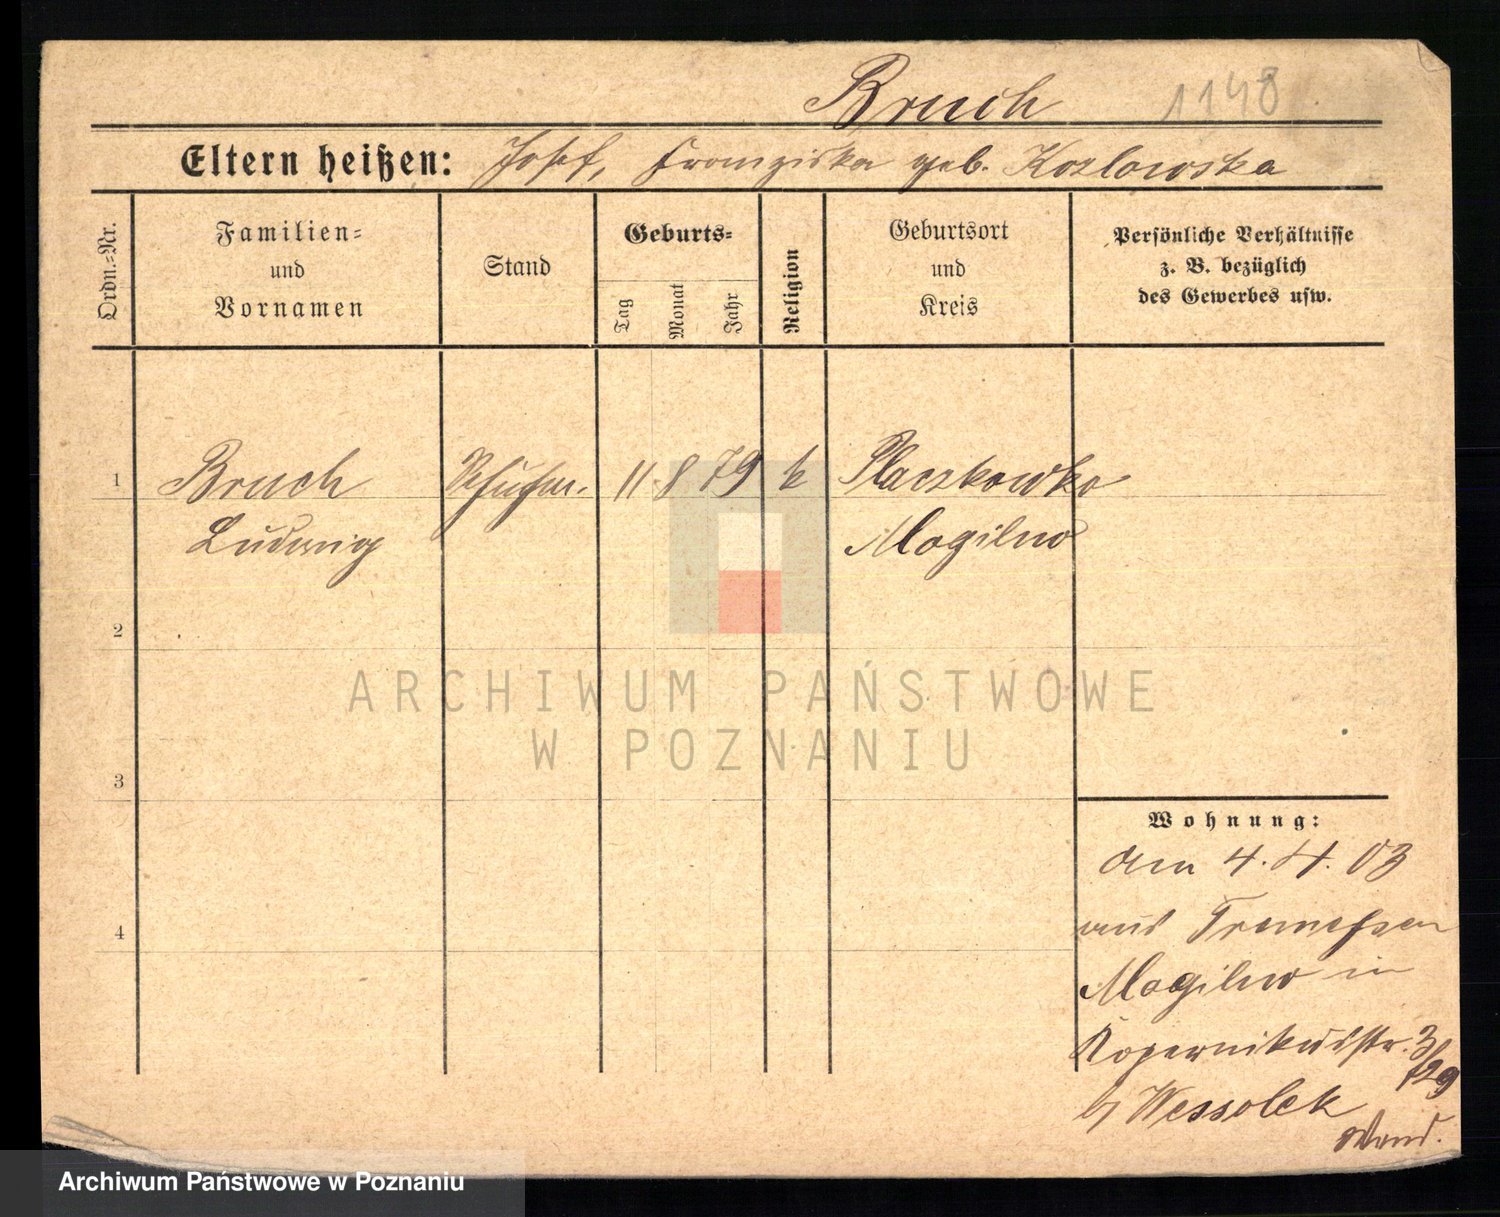 Bruch 1148
Eltern heißen: Josef, Franziska geb. Kozlowska
Ordn.-Nr.
Familien-
und
Vornamen
Stand
Geburts-
Tag
Monat
Jahr
Religion
Geburtsort
und
Kreis
Persönliche Verhältnisse
z. B. bezüglich
des Gewerbes usw.
1 Bruch Schuhm. 11 8 79 k Placzkowko
Ludwig Mogilno
2
3
4
ARCHIWUM PAŃSTWOWE
W POZNANIU
Wohnung:
am 4.4.03
aus Tremessen
Mogilno in
Kopernikusstr. 3
/29
b/ Wessolek
Archiwum Państwowe w Poznaniu